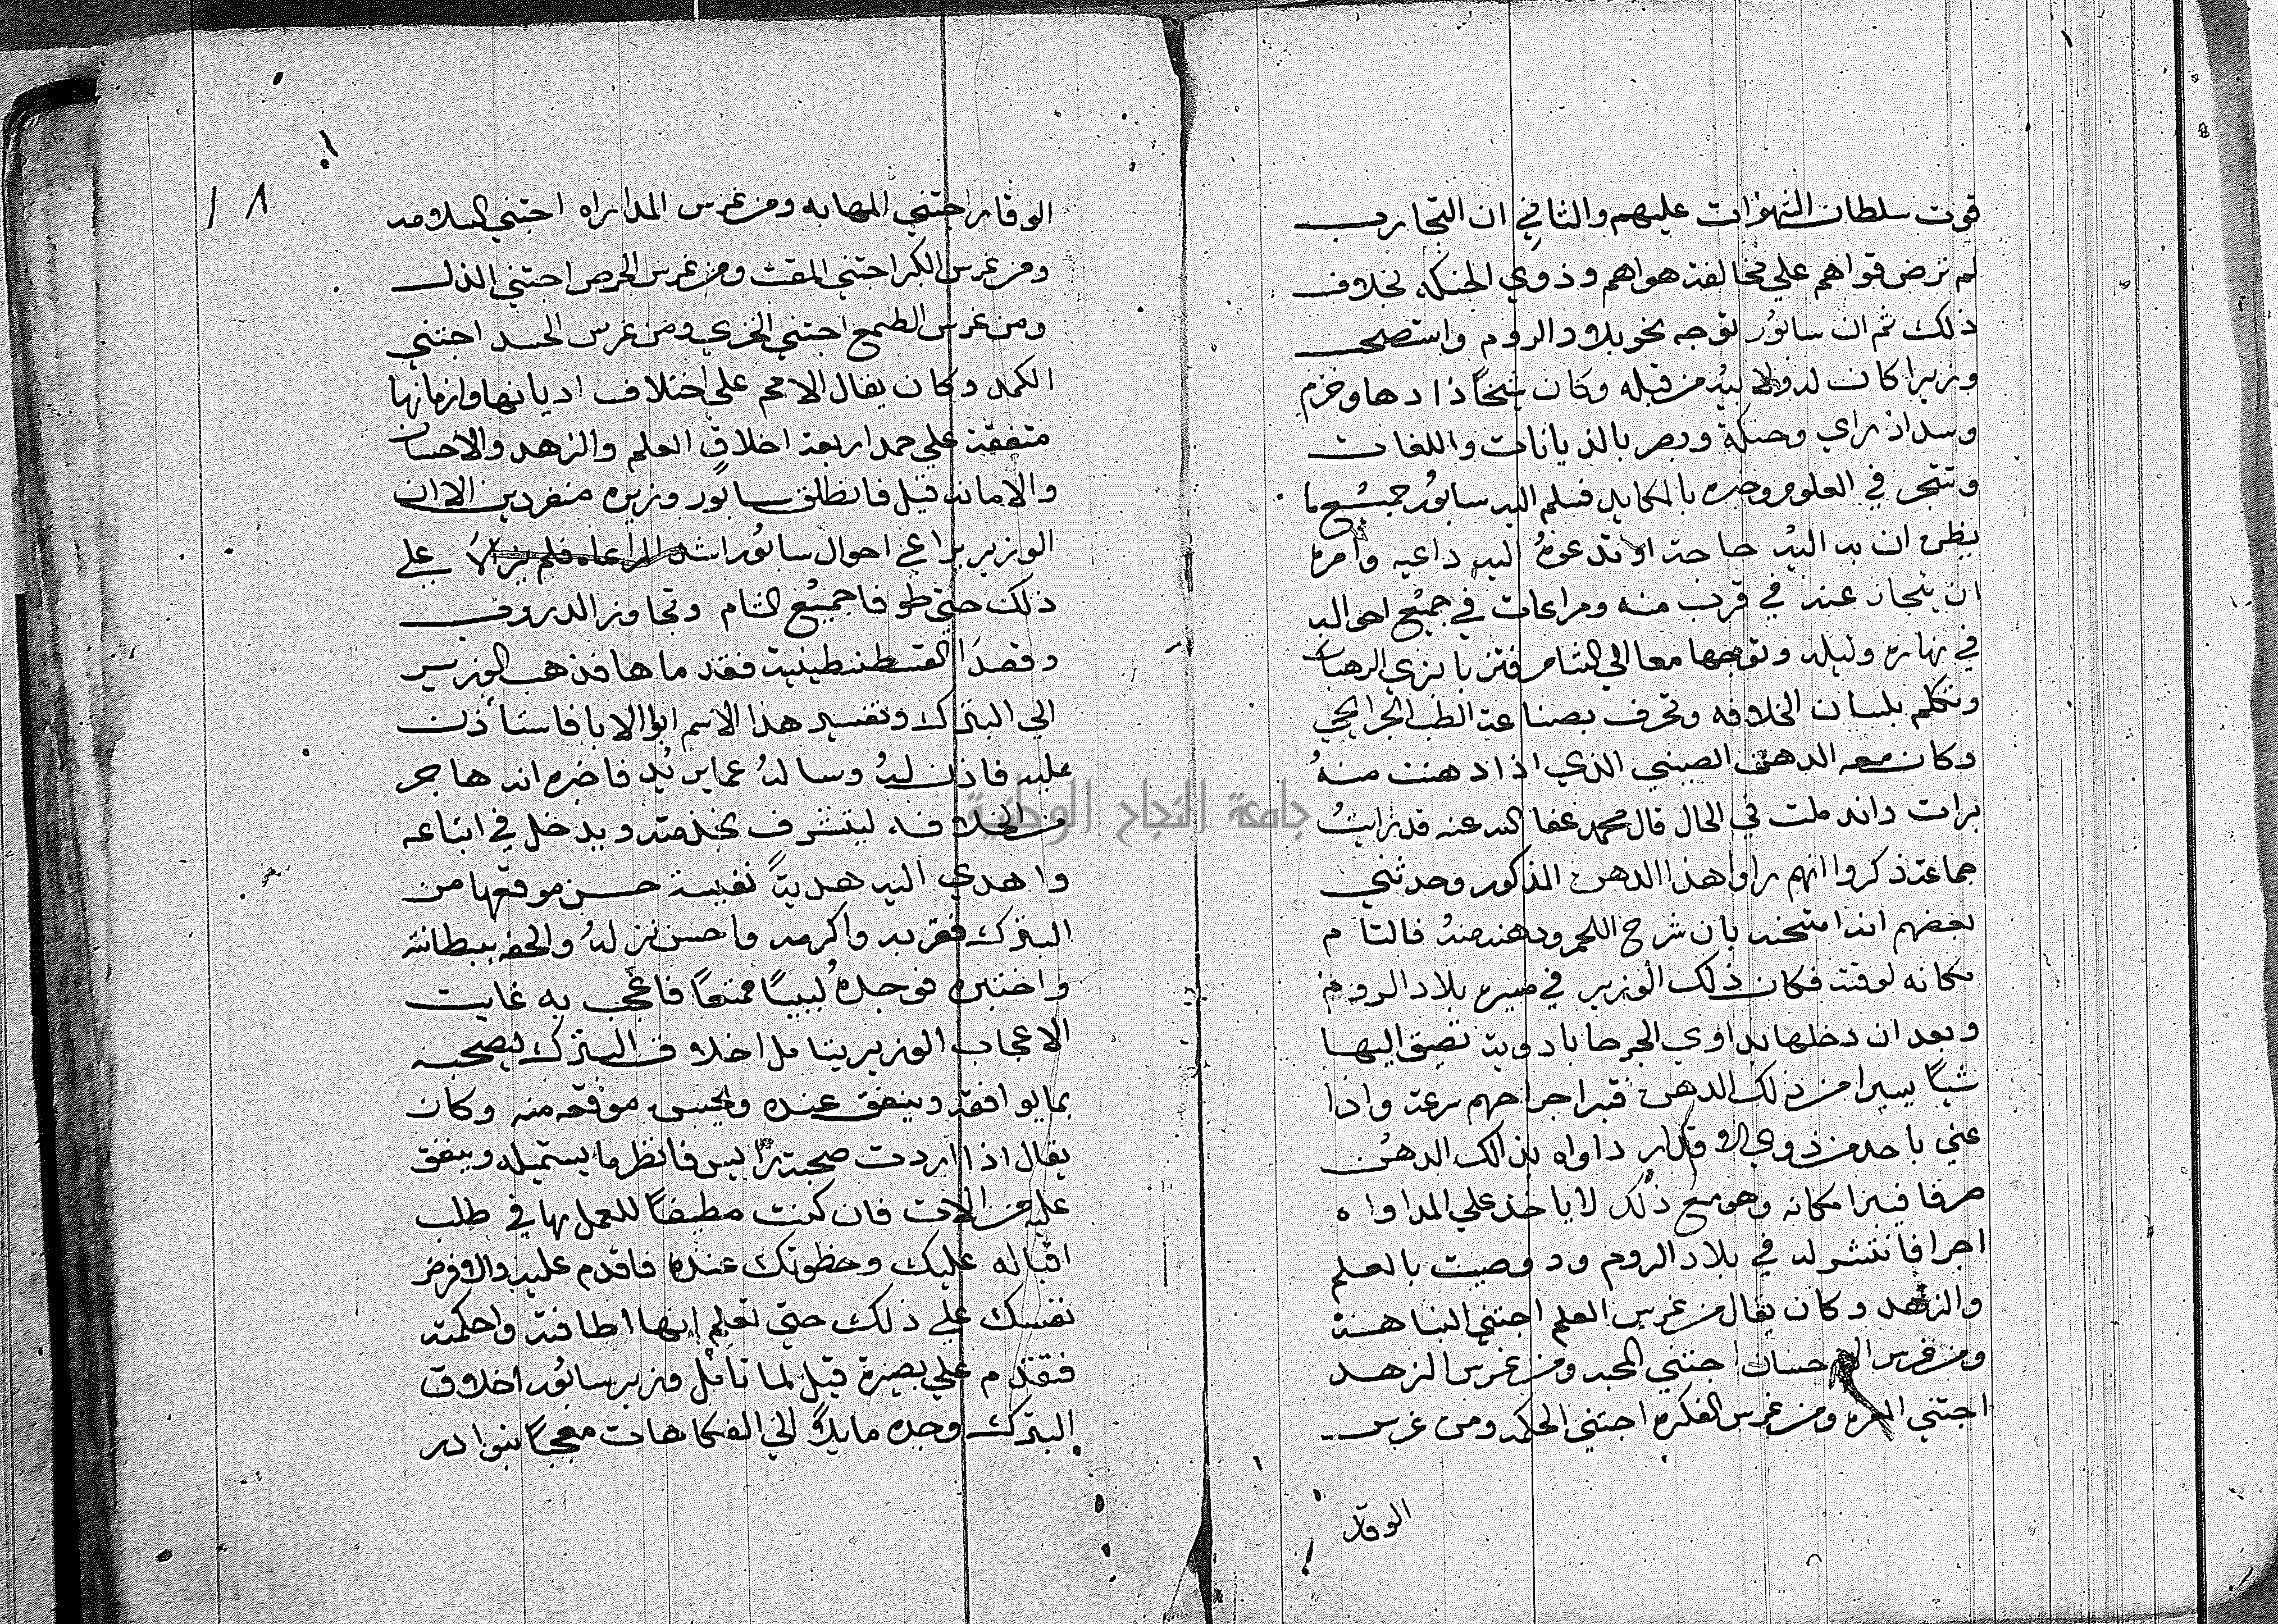 قوت سلطان الشهوات عليهم والثاني ان التجارب
لم ترض قواهم علي مخالفة هواهم وذوي الحنكه بخلاف
ذلك ثم ان سابور توجه نحو بلاد الروم واستصحب
وزيرا كان له ولابيه من قبله وكان شيخا ذا دها وحزم
وسداد راي وحنكة وبصر بالديانات واللغات
وتبحر في العلوم وخبره بالمكايد فسلم اليه سابور جميع ما
يظن ان به اليه حاجة او تدعوه اليه داعيه وامره
ان ينحاز عنه في قرب منه ومراعات في جميع احواله
في نهاره وليله وتوجها معا الي الشام فتزيا بزي الرهبان
وتكلم بلسان الخلافه وتحرف بصناعة الطب الجرايحي
وكان معه الدهن الصيني الذي اذا دهنت منه
برات واندملت في الحال قال محمد عفا الله عنه قد رايت
جماعة ذكروا انهم راوا هذا الدهن المذكور وحدثني
بعضهم انه امتحنه بان شرح اللحم ودهنه منه فالتام
مكانه لوقته فكان ذلك الوزير في مسيره بلاد الروم
وبعد ان دخلها يداوي الجرحا بادوية تضيف اليها
شيا يسيرا من ذلك الدهن فتبرا جراحهم سرعة واذا
عني باحد من ذوي الاقدار داواه بذالك الدهن
صرفا فيبرا مكانه وهو مع ذلك لا ياخذ علي المداواه
اجرا فانتشر له في بلاد الروم ود وصيت بالعلم
والزهد وكان يقال من غرس العلم اجتني النباهة
ومن غرس الاحسان اجتني المحبه ومن غرس الزهد
اجتني العزه ومن غرس الفكره اجتني الحكمه ومن غرس
الوقار
١٨
الوقار اجتني المهابه ومن غرس المداراه اجتني السلامه
ومن غرس الكبر اجتني المقت ومن غرس الحرص اجتني الذل
ومن غرس الطمع اجتني الخزي ومن غرس الحسد اجتني
الكمد وكان يقال الامم علي اختلاف اديانها وازمانها
متفقة علي حمد اربعة اخلاق العلم والزهد والاحسان
والامانه قيل فانطلق سابور وزيره منفردين الا ان
الوزير يراعي احوال سابور اشد المراعاه فلم يزالا علي
ذلك حتي طوفا جميع الشام وتجاوز الدروب
وقصدا القسطنطينية فقدماها فذهب الوزير
الي البترك وتفسير هذا الاسم ابو الابا فاستأذن
عليه فاذن له وساله عما يريد فاخبره انه هاجر
من الخلافه ليتشرف بخدمته ويدخل في اتباعه
واهدي اليه هدية نفيسة حسن موقعها من
البترك فقربه واكرمه واحسن نزله والحقه ببطانته
واختبره فوجده لبيبا ممتعا فاعجب به غايت
الاعجاب الوزير يتامل اخلاق البترك ليصحبه
بما يوافقه وينفق عنده ويحسن موقعه منه وكان
يقال اذا اردت صحبة رايس فانظر ما يستميله وينفق
عليه من الالات فان كنت مطيقا للعمل بها في طلب
اقباله عليك وحظوتك عنده فاقدم عليه والا فرض
نفسك علي ذلك حتي تعلم انها اطاقته واحكمته
فتقدم علي بصيرة قيل لما تامل وزير سابور اخلاق
البترك وجده مايلا الي الفكاهات معجبا بنوادر
جامعة النجاح الوطنية